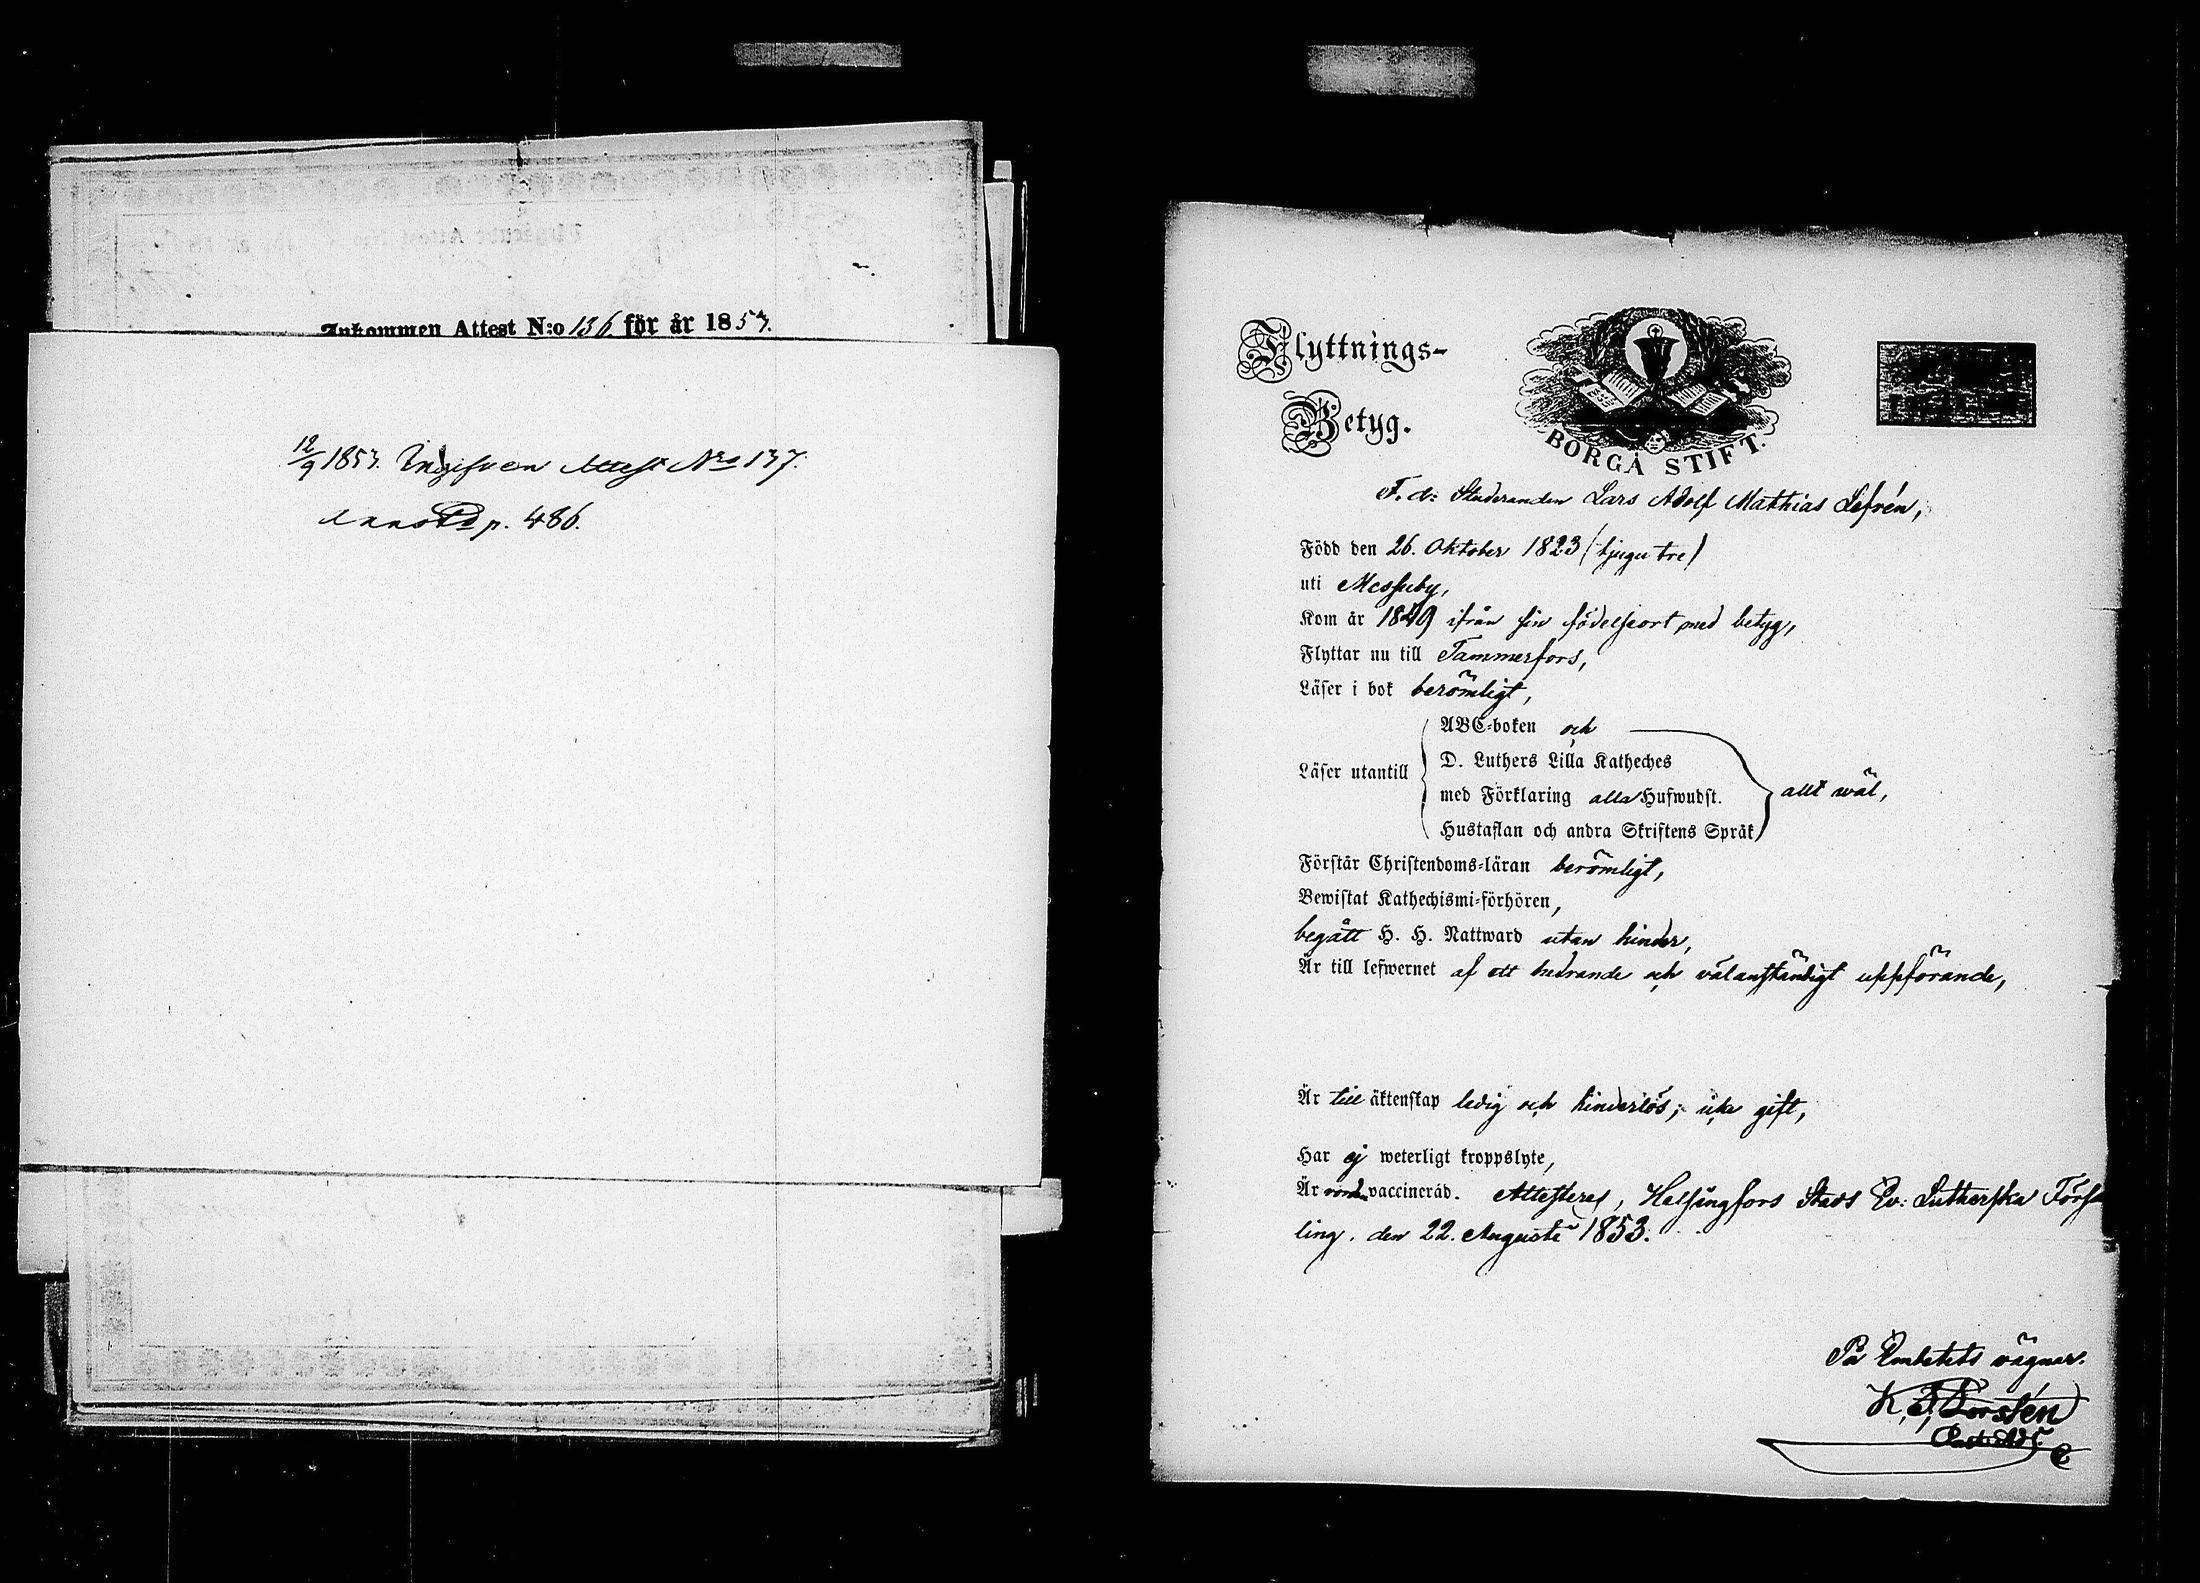 Inkommen Attest N:o 136 för år 1853.
12/9 1853. Ingifven Attest No 137.
p. 486.
Flyttnings-
Betyg.
BORGÅ STIFT.
F. d: Studeranden Lars Adolf Mathias Lefrén,
Född den 26. Oktober 1823 (tjugu tre)
uti Messuby,
Kom år 1849 ifrån sin födelseort med betyg,
Flyttar nu till Tammerfors,
Läser i bok berömligt,
ABC-boken och
Läser utantill
D. Luthers Lilla Katheches
med Förklaring alla Hufwudst.
allt wäl,
Hustaflan och andra Skriftens Språk
Förstår Christendoms-läran berömligt,
Bewistat Kathechismi-förhören,
begått H. H. Nattward utan hinder,
Är till lefwernet af ett hedrande och välanständigt uppförande,
Är till äktenskap ledig och hinderlös; icke gift,
Har ej weterligt kroppslyte,
Är vaccineråd. Attesteras, Helsingfors Stads Ev: Lutherska Församling
ling. den 22. Augusti 1853.
På Embetets vägnar.